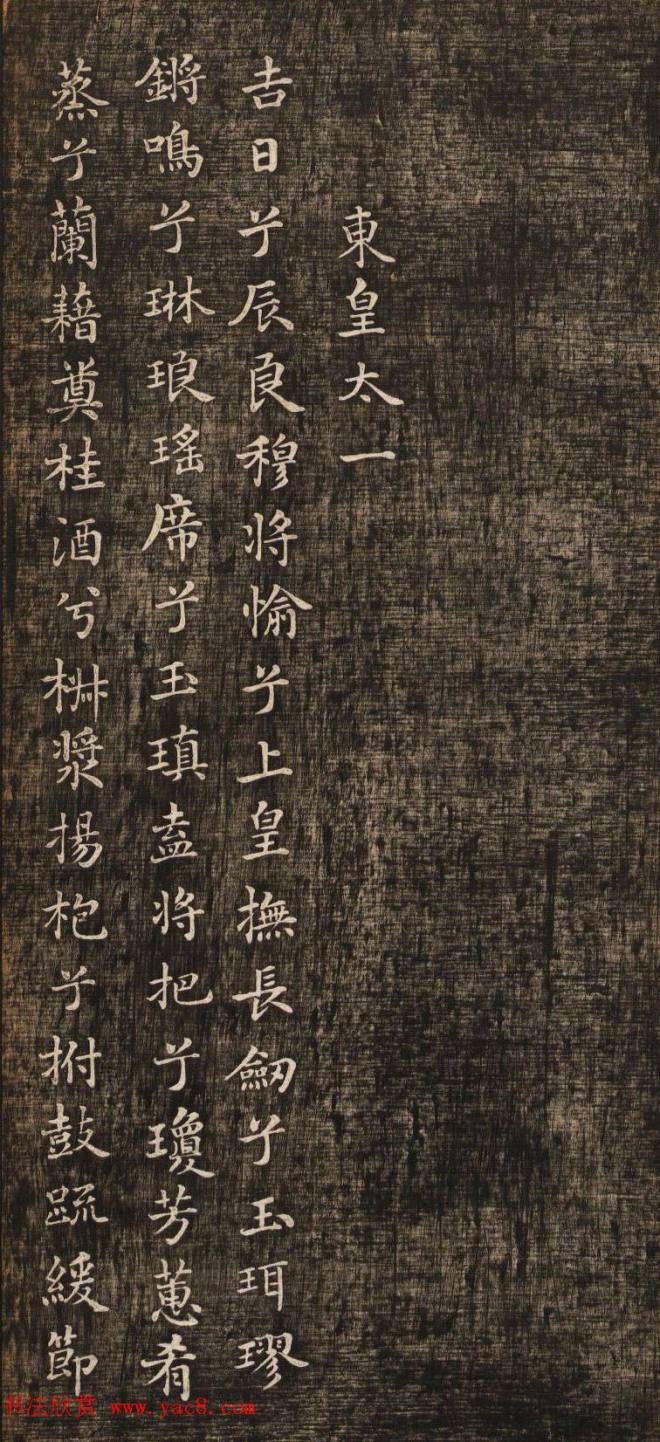 東皇太一
吉日兮辰良穆将愉兮上皇撫長劒兮玉珥璆
鏘鳴兮琳琅瑤席兮玉瑱盍将把兮瓊芳蕙肴
蒸兮蘭藉奠桂酒兮椒漿揚枹兮拊鼓疏緩節
书法欣赏 www.yac8.com